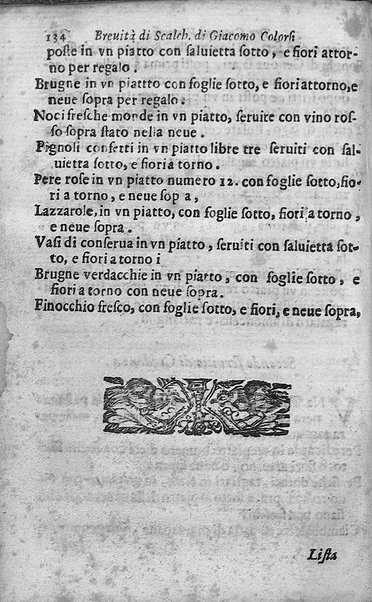 134 Breuità di Scalch. di Giacomo Colorsi
poste in vn piatto con saluietta sotto, e fiori attor-
no per regalo.
Brugne in vn piattto con foglie sotto, e fiori attorno, e
neue sopra per regalo.
Noci fresche monde in vn piatto, seruite con vino ros-
so sopra stato nella neue.
Pignoli confetti in vn piatto libre tre seruiti con sal-
uietta sotto, e fiori a torno.
Pere rose in vn piatto numero 12. con foglie sotto, fio-
ri a torno, e neue sop a,
Lazzarole, in vn piatto, con foglie sotto, fiori a torno,
e neue sopra.
Vasi di conserua in vn piatto, seruiti con saluietta sot-
to, e fiori a torno i
Brugne verdacchie in vn piatto, con foglie sotto, e
fiori a torno con neue sopra.
Finocchio fresco, con foglie sotto, e fiori, e neue sopra,
Lista